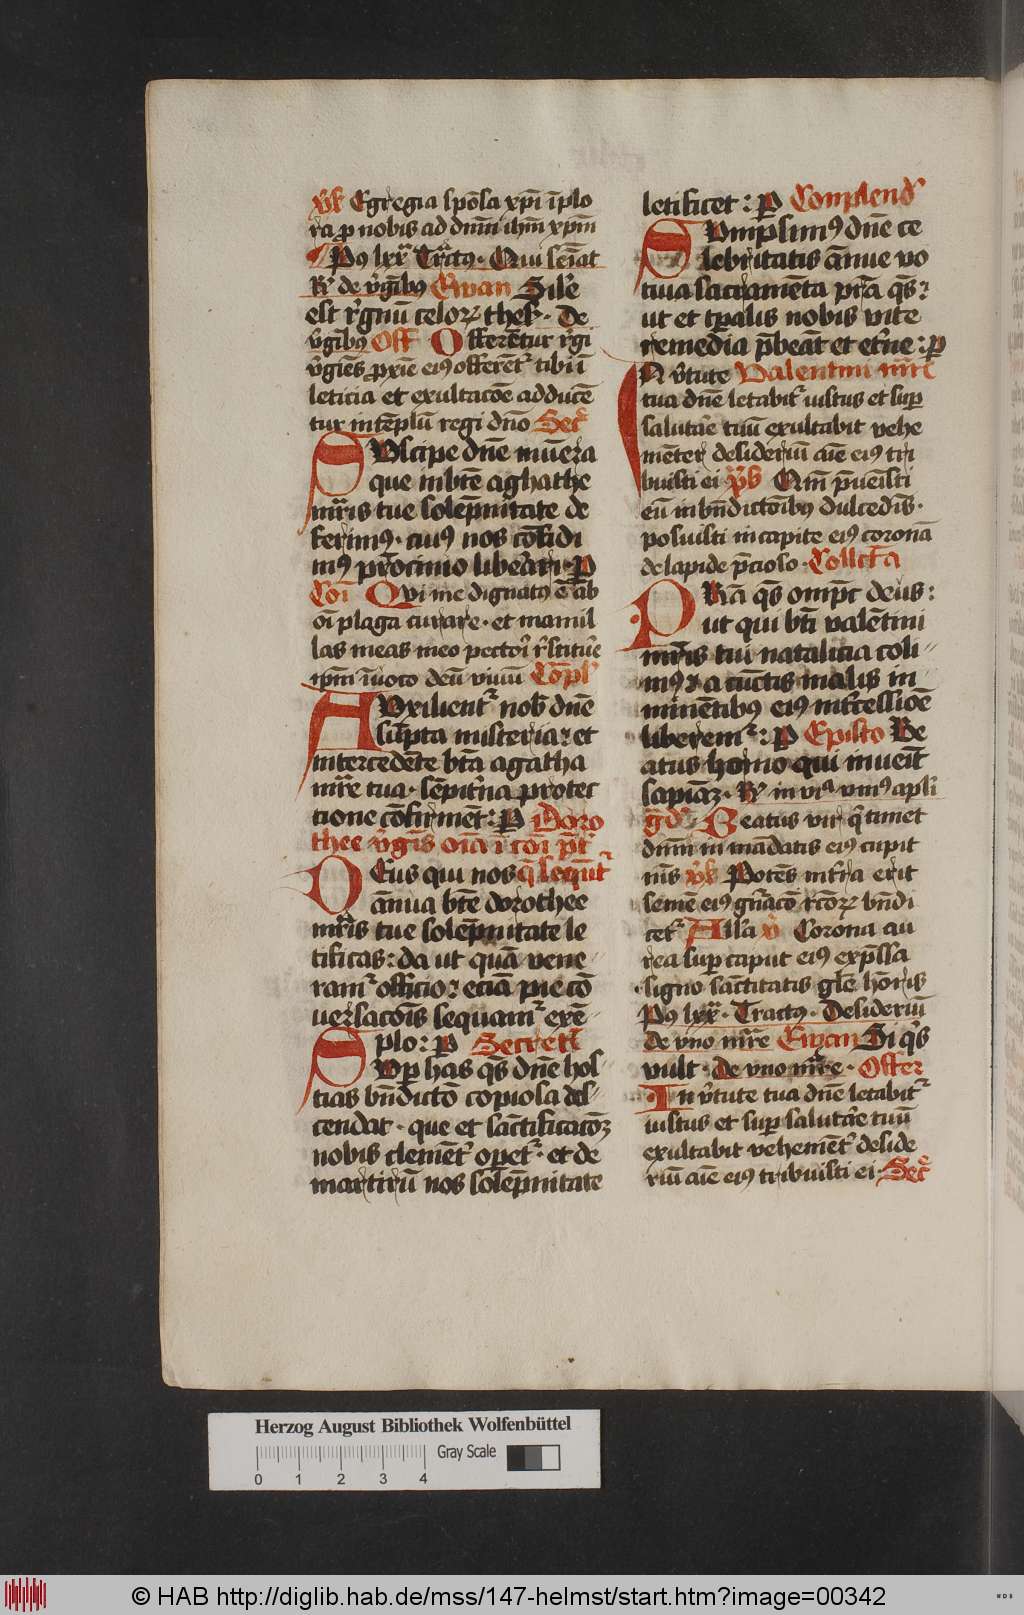 v̉s Egregia spōsa xp̄i īplo
ra ꝓ nobis ad dn̄m ih̄m xp̄m
Pꝰ lxx Tractꝰ · Qui sēīat
R̉ de v̉gībꝰ Ewan Sil'e
est r̉gnū celoꝝ thes̉ · De
v̉gībꝰ Off Offerētur r̉gi
v̉gīēs ꝓxīe eiꝰ offerēt' tibi ī
leticia et exultacōe adducē
tur in tēplū regi dn̄o Sec̉
SUscipe dn̄e mūera
que in btē aghathe
mr̄is tue solēpnitate de
ferimꝰ · cuiꝰ nos cōfidi
mꝰ prōcinio liberāri · P
Cōi Qui me dignatꝰ ē ab
oī plaga curare · et mamil
las meas meo pectori r̉stituē
ip̄m īuoco deū viuū Cōpl'
AUxilient' nob̄ dn̄e
sūpta misteria: et
intercedēte btā agatha
mr̄e tua · sēpit̉na protec
tione cōfirmēt: P Doro
thee v̉gīs oīa ī cōi p̄t'
DEus qui nos q̄ sequt̄'
ānua btē dorothee
mr̄is tue solēpnitate le
tificas: da ut quā vene-
ram' officio: eciā pie cō
uersacōis sequam' exē-
plo: P Secret'
SUp has q̄s dn̄e hos
tias bn̄dictō copiosa des-
cendat · que et sāctificacōꝫ
nobis clemēt' opet' · et de
martirū nos solēpnitate
letificet: P Complend'
SUmpsimꝰ dn̄e ce
lebritatis ānue vo
tiua sacramēta pr̄a q̄s:
ut et tp̄alis nobis vite
remedia p̄beāt et et̉ne: P
IN v̉tute Valentini mr̄is
tua dn̄e letabit' iustus et suꝑ
salutāe tuū exultabit vehe
mēter desideriū aīe eiꝰ tri
buisti ei p̄s Qm̄ p̄uēisti
eū in bn̄dictōibꝰ dulcedīs ·
posuisti in capite eiꝰ coronā
de lapide p̄cioso · Collc̄ta
PRā q̄s omp̄c deus:
ut qui btī valētini
mr̄is tui natalicia coli-
mꝰ: a cūctis malis in
minētibꝰ eiꝰ int̉cessiōe
liberem': P Episto Be
atus homo qui inueīt
sapiāꝫ · R̉ in vi' vniꝰ apl'i
gd̄' Beatus vir q̄ timet
dn̄m in mādatis eiꝰ cupit
nīs v̉s Potēs in t̉ra erit
semē eiꝰ gn̄acō r̄coꝝ bn̄di
cet' Alla v̉ Corona au
rea suꝑ caput eiꝰ exp̄ssa
signo sāctitatis gl̄e hōris
Pꝰ lxx · Tractꝰ · Desideriū
de vno mr̄e Ewan Si q̉s
vult · de vno mr̄e · Offer
In v̉tute tua dn̄e letabit'
iustus et suꝑ salutāe tuū
exultabit vehemēt' deside
riū aīe eiꝰ tribuisti ei · Sec̉
Herzog August Bibliothek Wolfenbüttel
Gray Scale
0 1 2 3 4
© HAB http://diglib.hab.de/mss/147-helmst/start.htm?image=00342